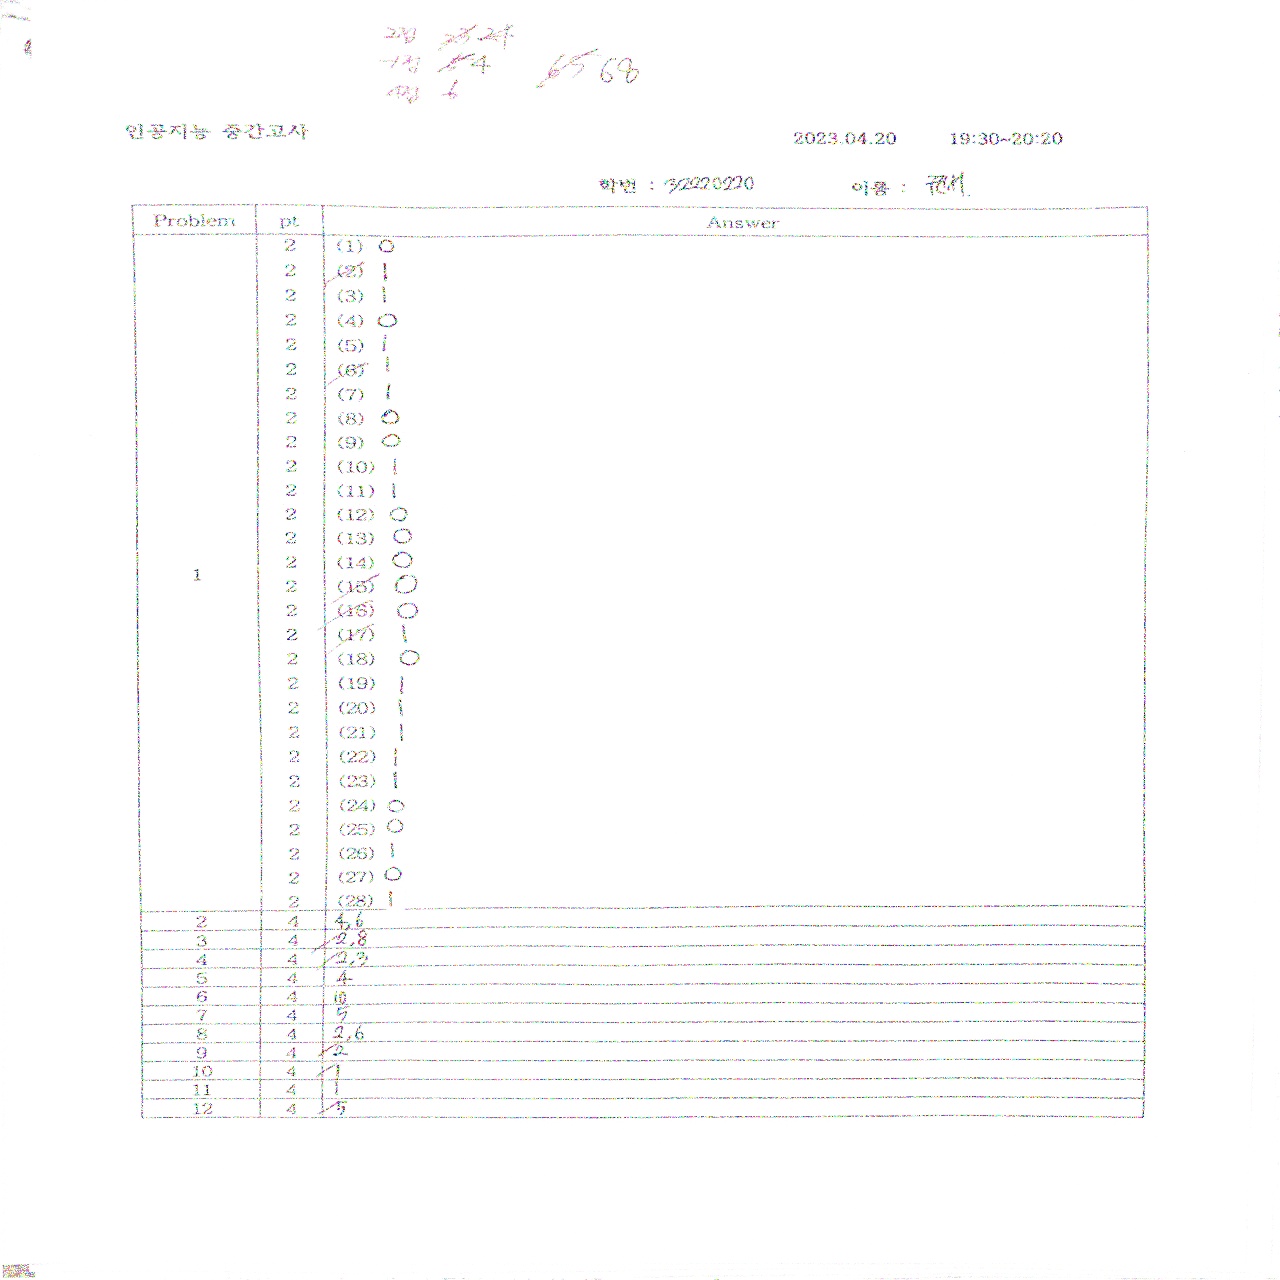 2점 25 24
-1점 5 4 65 68
4점 6
인공지능 중간고사
2023.04.20 19:30~20:20
학번 : 32220220 이름 :
Problem pt Answer
2 (1) 0
2 (2) 1
2 (3) 1
2 (4) 0
2 (5) 1
2 (6) 1
2 (7) 1
2 (8) 0
2 (9) 0
2 (10) 1
2 (11) 1
2 (12) 0
2 (13) 0
2 (14) 0
1
2 (15) 0
2 (16) 0
2 (17) 1
2 (18) 0
2 (19) 1
2 (20) 1
2 (21) 1
2 (22) 1
2 (23) 1
2 (24) 0
2 (25) 0
2 (26) 1
2 (27) 0
2 (28) 1
2 4 4,6
3 4 2,8
4 4 2,3
5 4 4
6 4
7 4 5
8 4 2,6
9 4 2
10 4 1
11 4 1
12 4 5